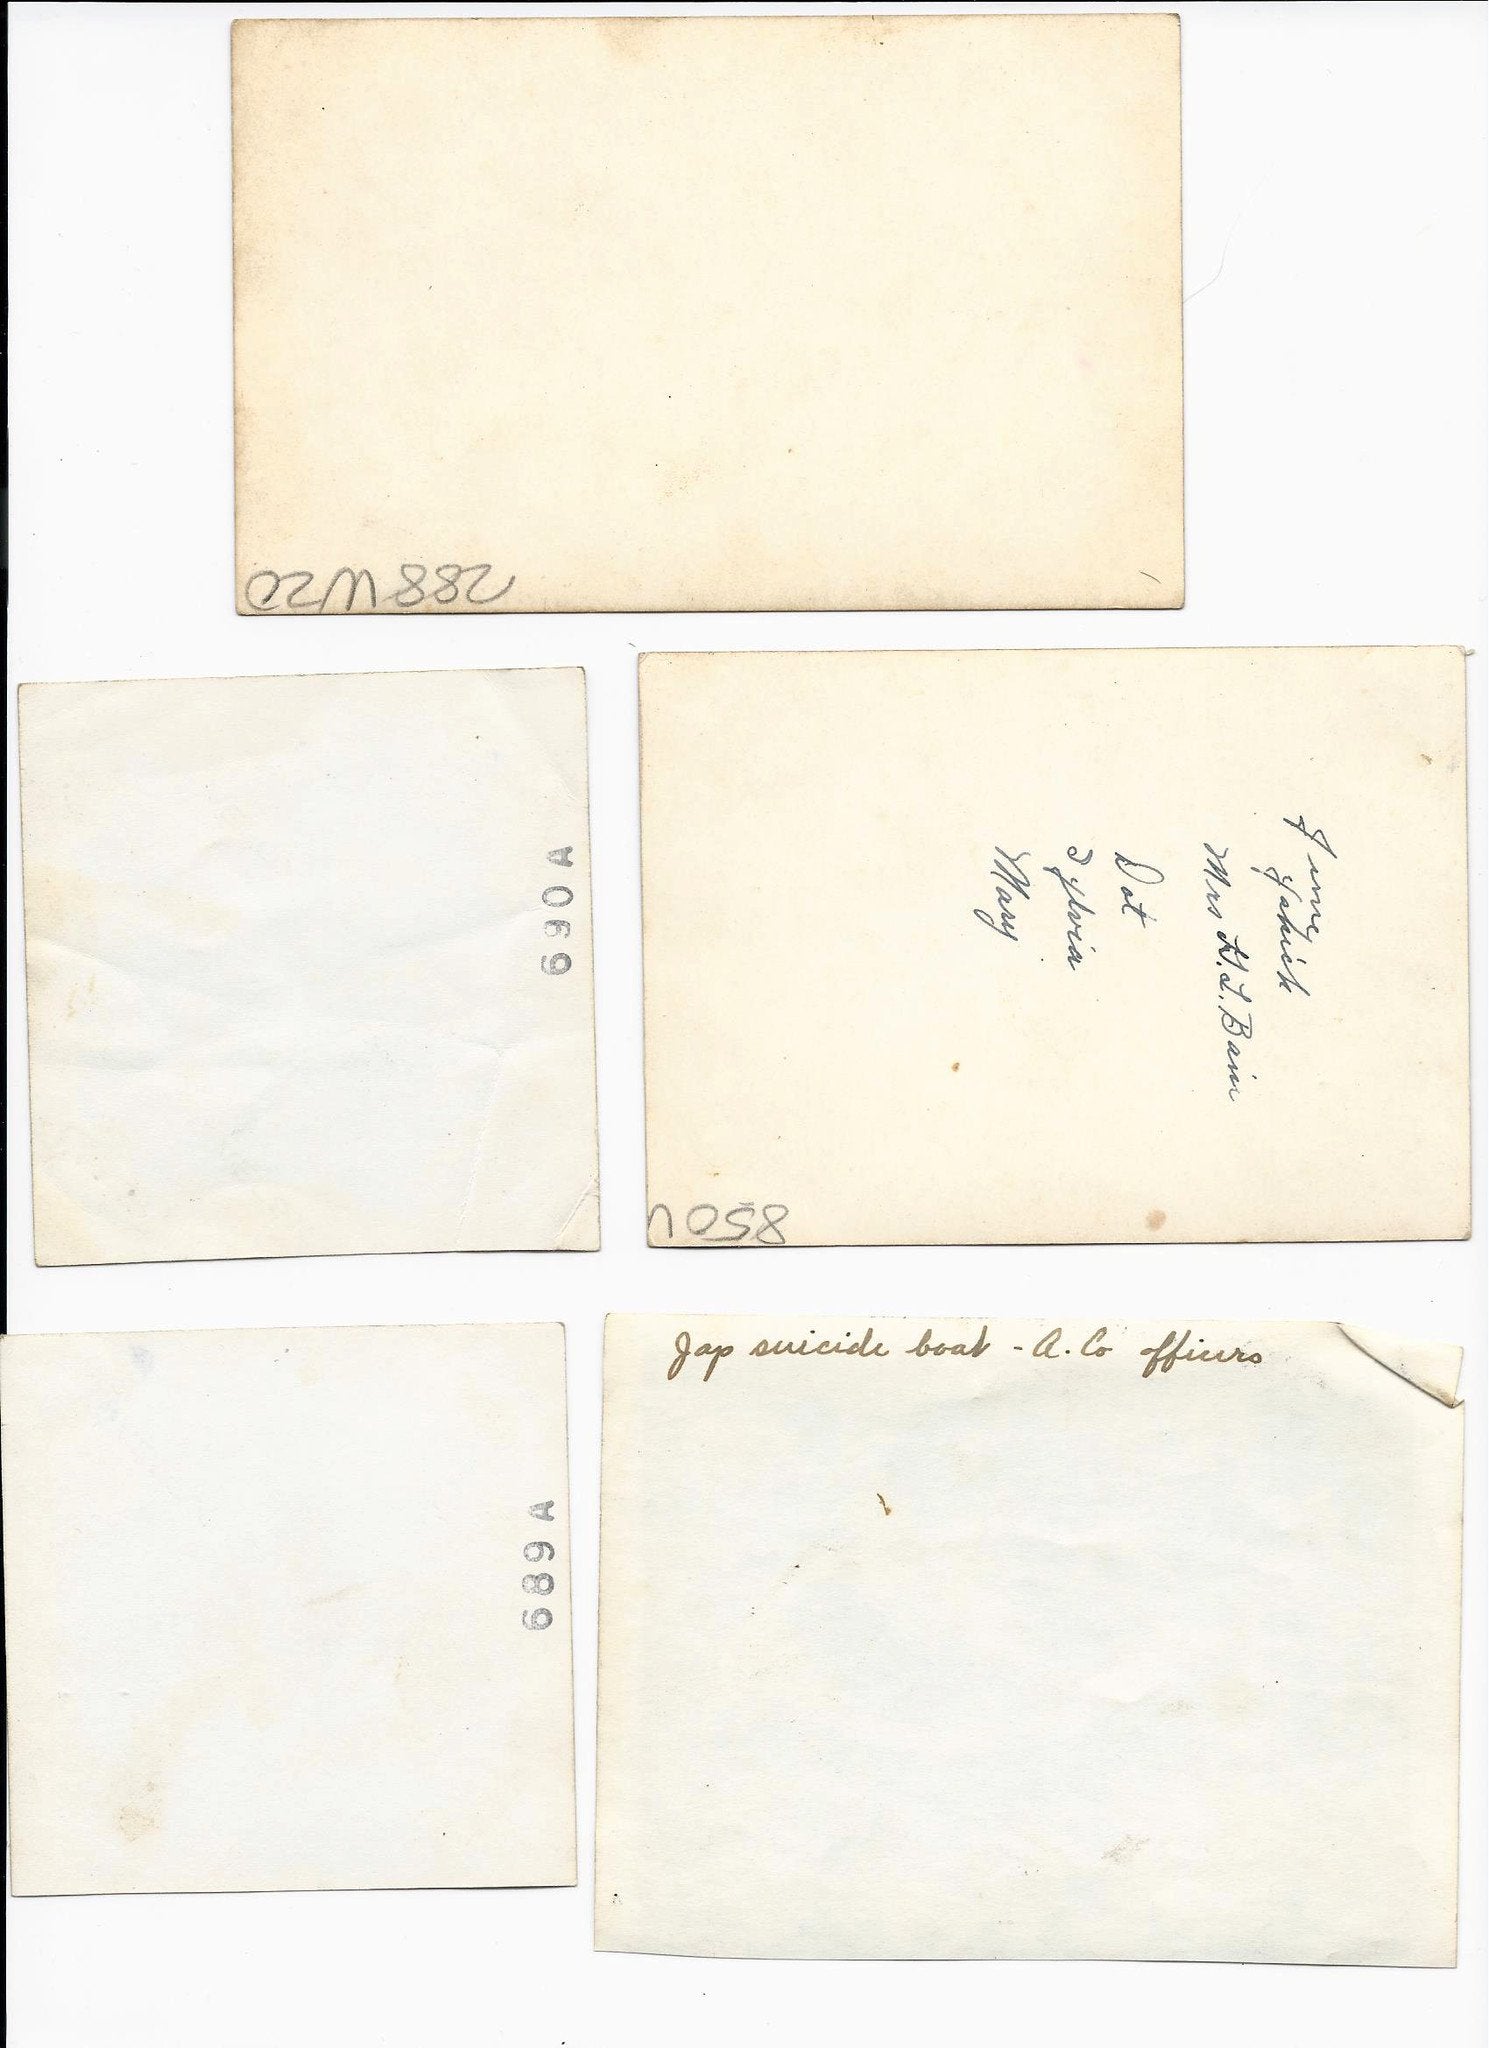 288W20
690A
Mrs H.L. Bain
Dot
Sylvia
Mary
850U
689A
Jap suicide boat - A. Co officers